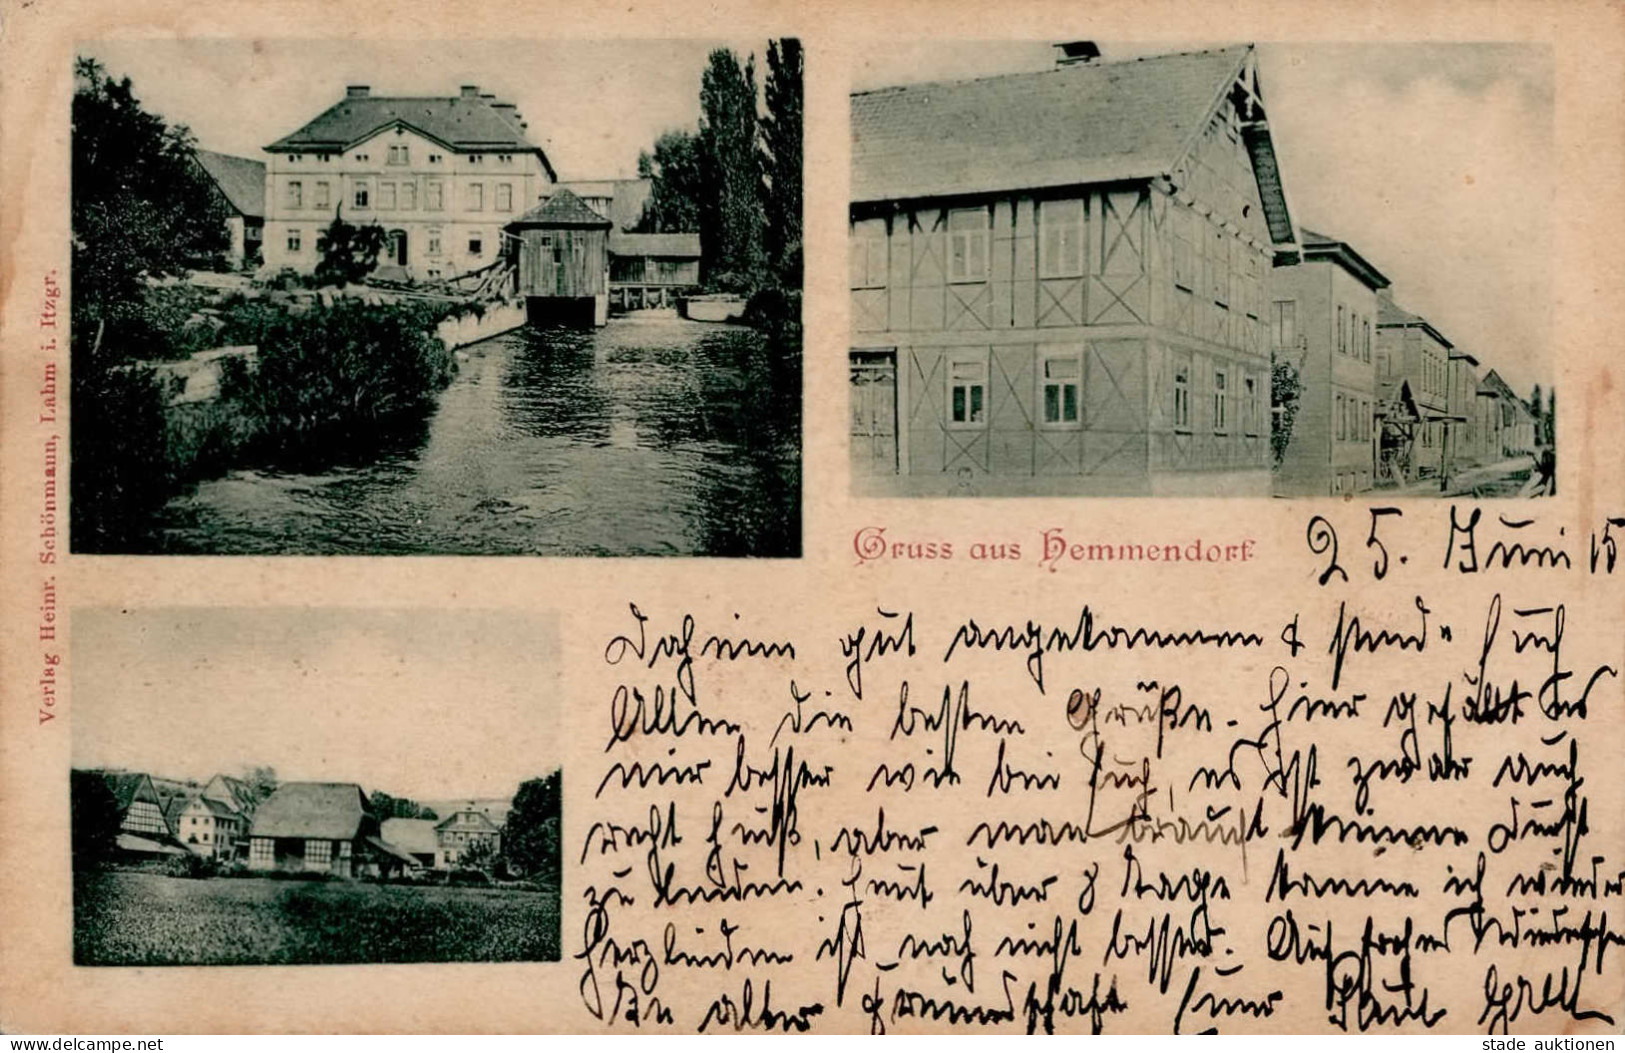 Verlag Heinr. Schönmann, Lahm i. Itzgr.
Gruss aus Hemmendorf
25. Juni 15
Daheim gut angekommen & sende Euch
Allen die besten Grüße. Hier gefällt es
mir besser wie bei Euch, es ist zwar auch
recht heiß, aber man braucht keinen Durst
zu leiden. Heut über 8 Tage komme ich wieder
Herzleiden ist noch nicht besser. Auf frohes Wiedersehen
In alter Freundschaft Euer
stade auktionen
HipPostcard.com